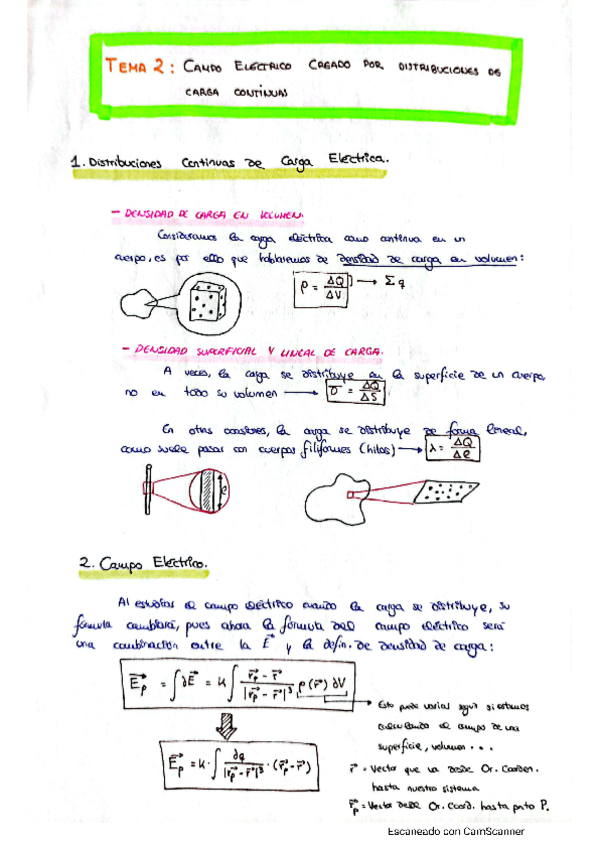 TEMA 2: CAMPO ELECTRICO CREADO POR DISTRIBUCIONES DE
CARGA CONTINUAS
1. Distribuciones Continuas de Carga Electrica.
- DENSIDAD DE CARGA EN VOLUMEN.
Consideramos la carga eléctrica como continua en un
cuerpo, es por ello que hablaremos de densidad de carga en volumen:
ρ = ΔQ/ΔV → Σq
- DENSIDAD SUPERFICIAL Y LINEAL DE CARGA.
A veces, la carga se distribuye en la superficie de un cuerpo,
no en todo su volumen → σ = ΔQ/ΔS
En otras ocasiones, la carga se distribuye de forma lineal,
como suele pasar con cuerpos filiformes (hilos) → λ = ΔQ/Δℓ
ℓ
2. Campo Electrico.
Al estudiar el campo eléctrico cuando la carga se distribuye, su
fórmula cambiará, pues ahora la fórmula del campo eléctrico será
una combinación entre la E⃗ y la defin. de densidad de carga:
E⃗p = ∫dE⃗ = k∫ (r⃗p - r⃗)/|r⃗p - r⃗|³ ρ(r⃗) dV
Esto puede variar según si estamos
calculando el campo de una
superficie, volumen...
E⃗p = k·∫ dq/|r⃗p - r⃗|³ · (r⃗p - r⃗)
r⃗ = Vector que va desde Or. Coorden.
hasta nuestro sistema
r⃗p = Vector desde Or. Coord. hasta pnto P.
Escaneado con CamScanner